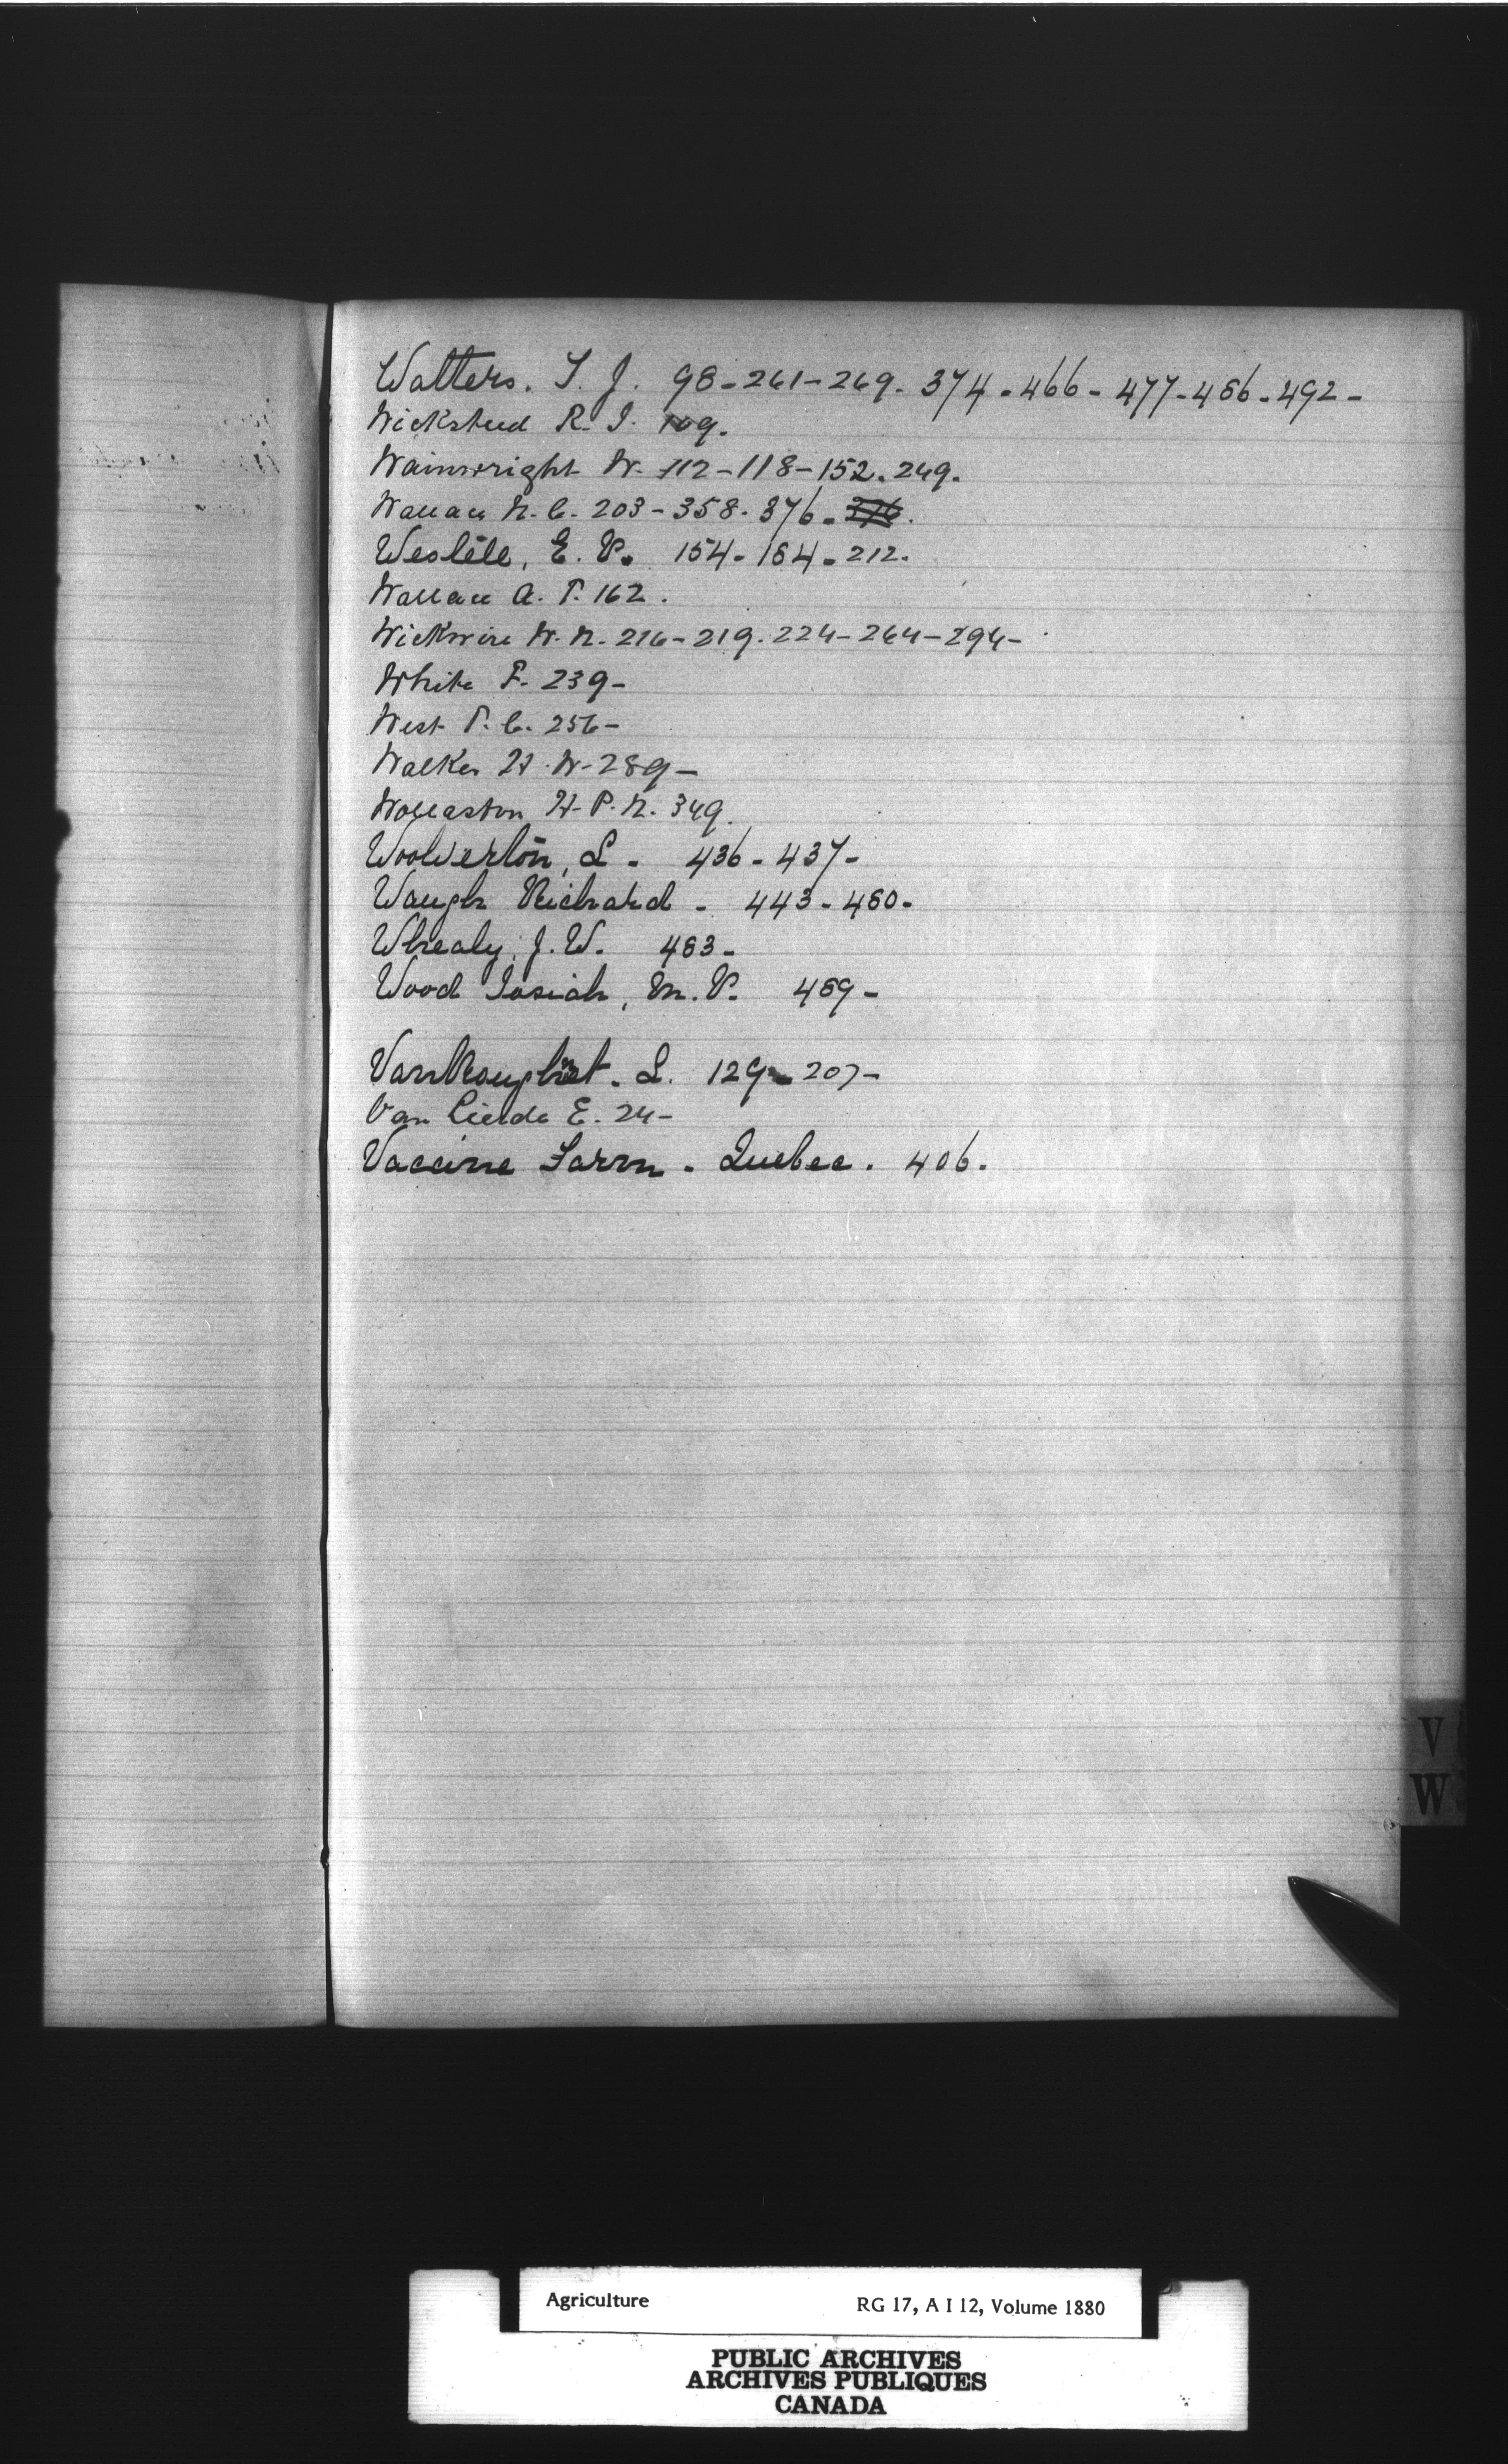 Watters. T. J. 98-261-269. 374-466-477-486-492-
Wicksteed R. J. 109.
Wainwright W. 112-118-152. 249.
Wallace N. C. 203-358. 376. 376.
Westell, E. P. 154-184-212.
Wallace A. P. 162.
Wickwire W. N. 216-219. 224-264-294-
White F. 239-
West P. C. 256-
Walker H. W. 289-
Wollaston H. P. N. 349.
Woolverton, L. 436-437-
Waugh Richard - 443-480-
Whealy, J. W. 483-
Wood Josiah, M. P. 489-
Van L. 129-207-
Van Lierde E. 24-
Vaccine Farm - Quebec. 406.
V
W
Agriculture RG 17, A I 12, Volume 1880
PUBLIC ARCHIVES
ARCHIVES PUBLIQUES
CANADA